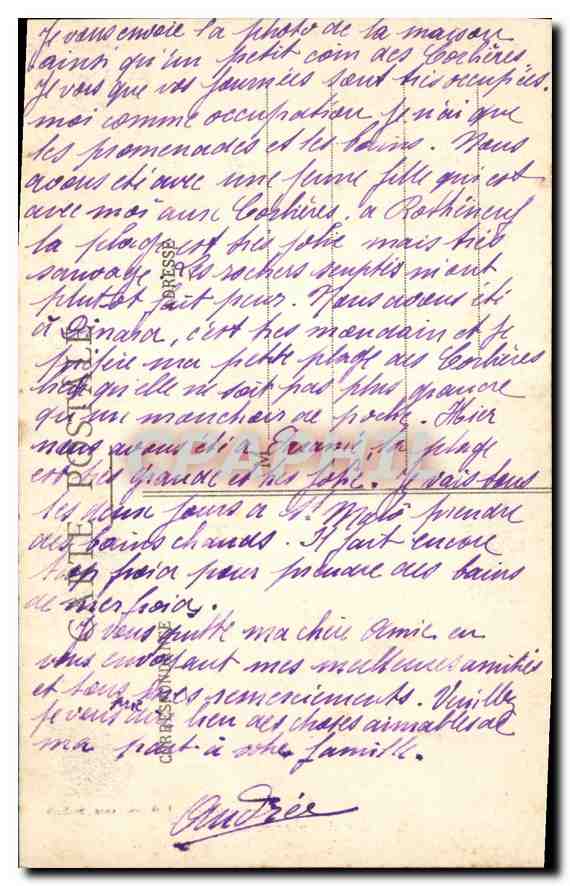 Je vous envoie la photo de la maison
ainsi qu'un petit coin des Corbières.
Je vois que vos journées sont très occupées.
moi comme occupation je n'ai que
les promenades et les bains. Nous
avons été avec une jeune fille qui est
avec moi aux Corbières. a Rothéneuf
la plage est très jolie mais très
sauvage les rochers sculptés m'ont
plutôt fait peur. Nous avons été
à Dinard, c'est très mondain et je
préfère ma petite plage des Corbières
qu'elle ne soit pas plus grande
qu'un mouchoir de poche. Hier
nous avons été a la plage
est très grande et très jolie. Je vais tous
les deux jours a St Malo prendre
des bains chauds. Il fait encore
trop froid pour prendre des bains
de mer froid.
Je vous quitte ma chère Amie en
vous envoyant mes meilleures amitiés
et tous mes remerciements. Veuillez
je vous prie dire bien des choses aimables de
ma part à votre famille.
Andrée
CARTE POSTALE
CORRESPONDANCE
ADRESSE
M
CPAPHIL